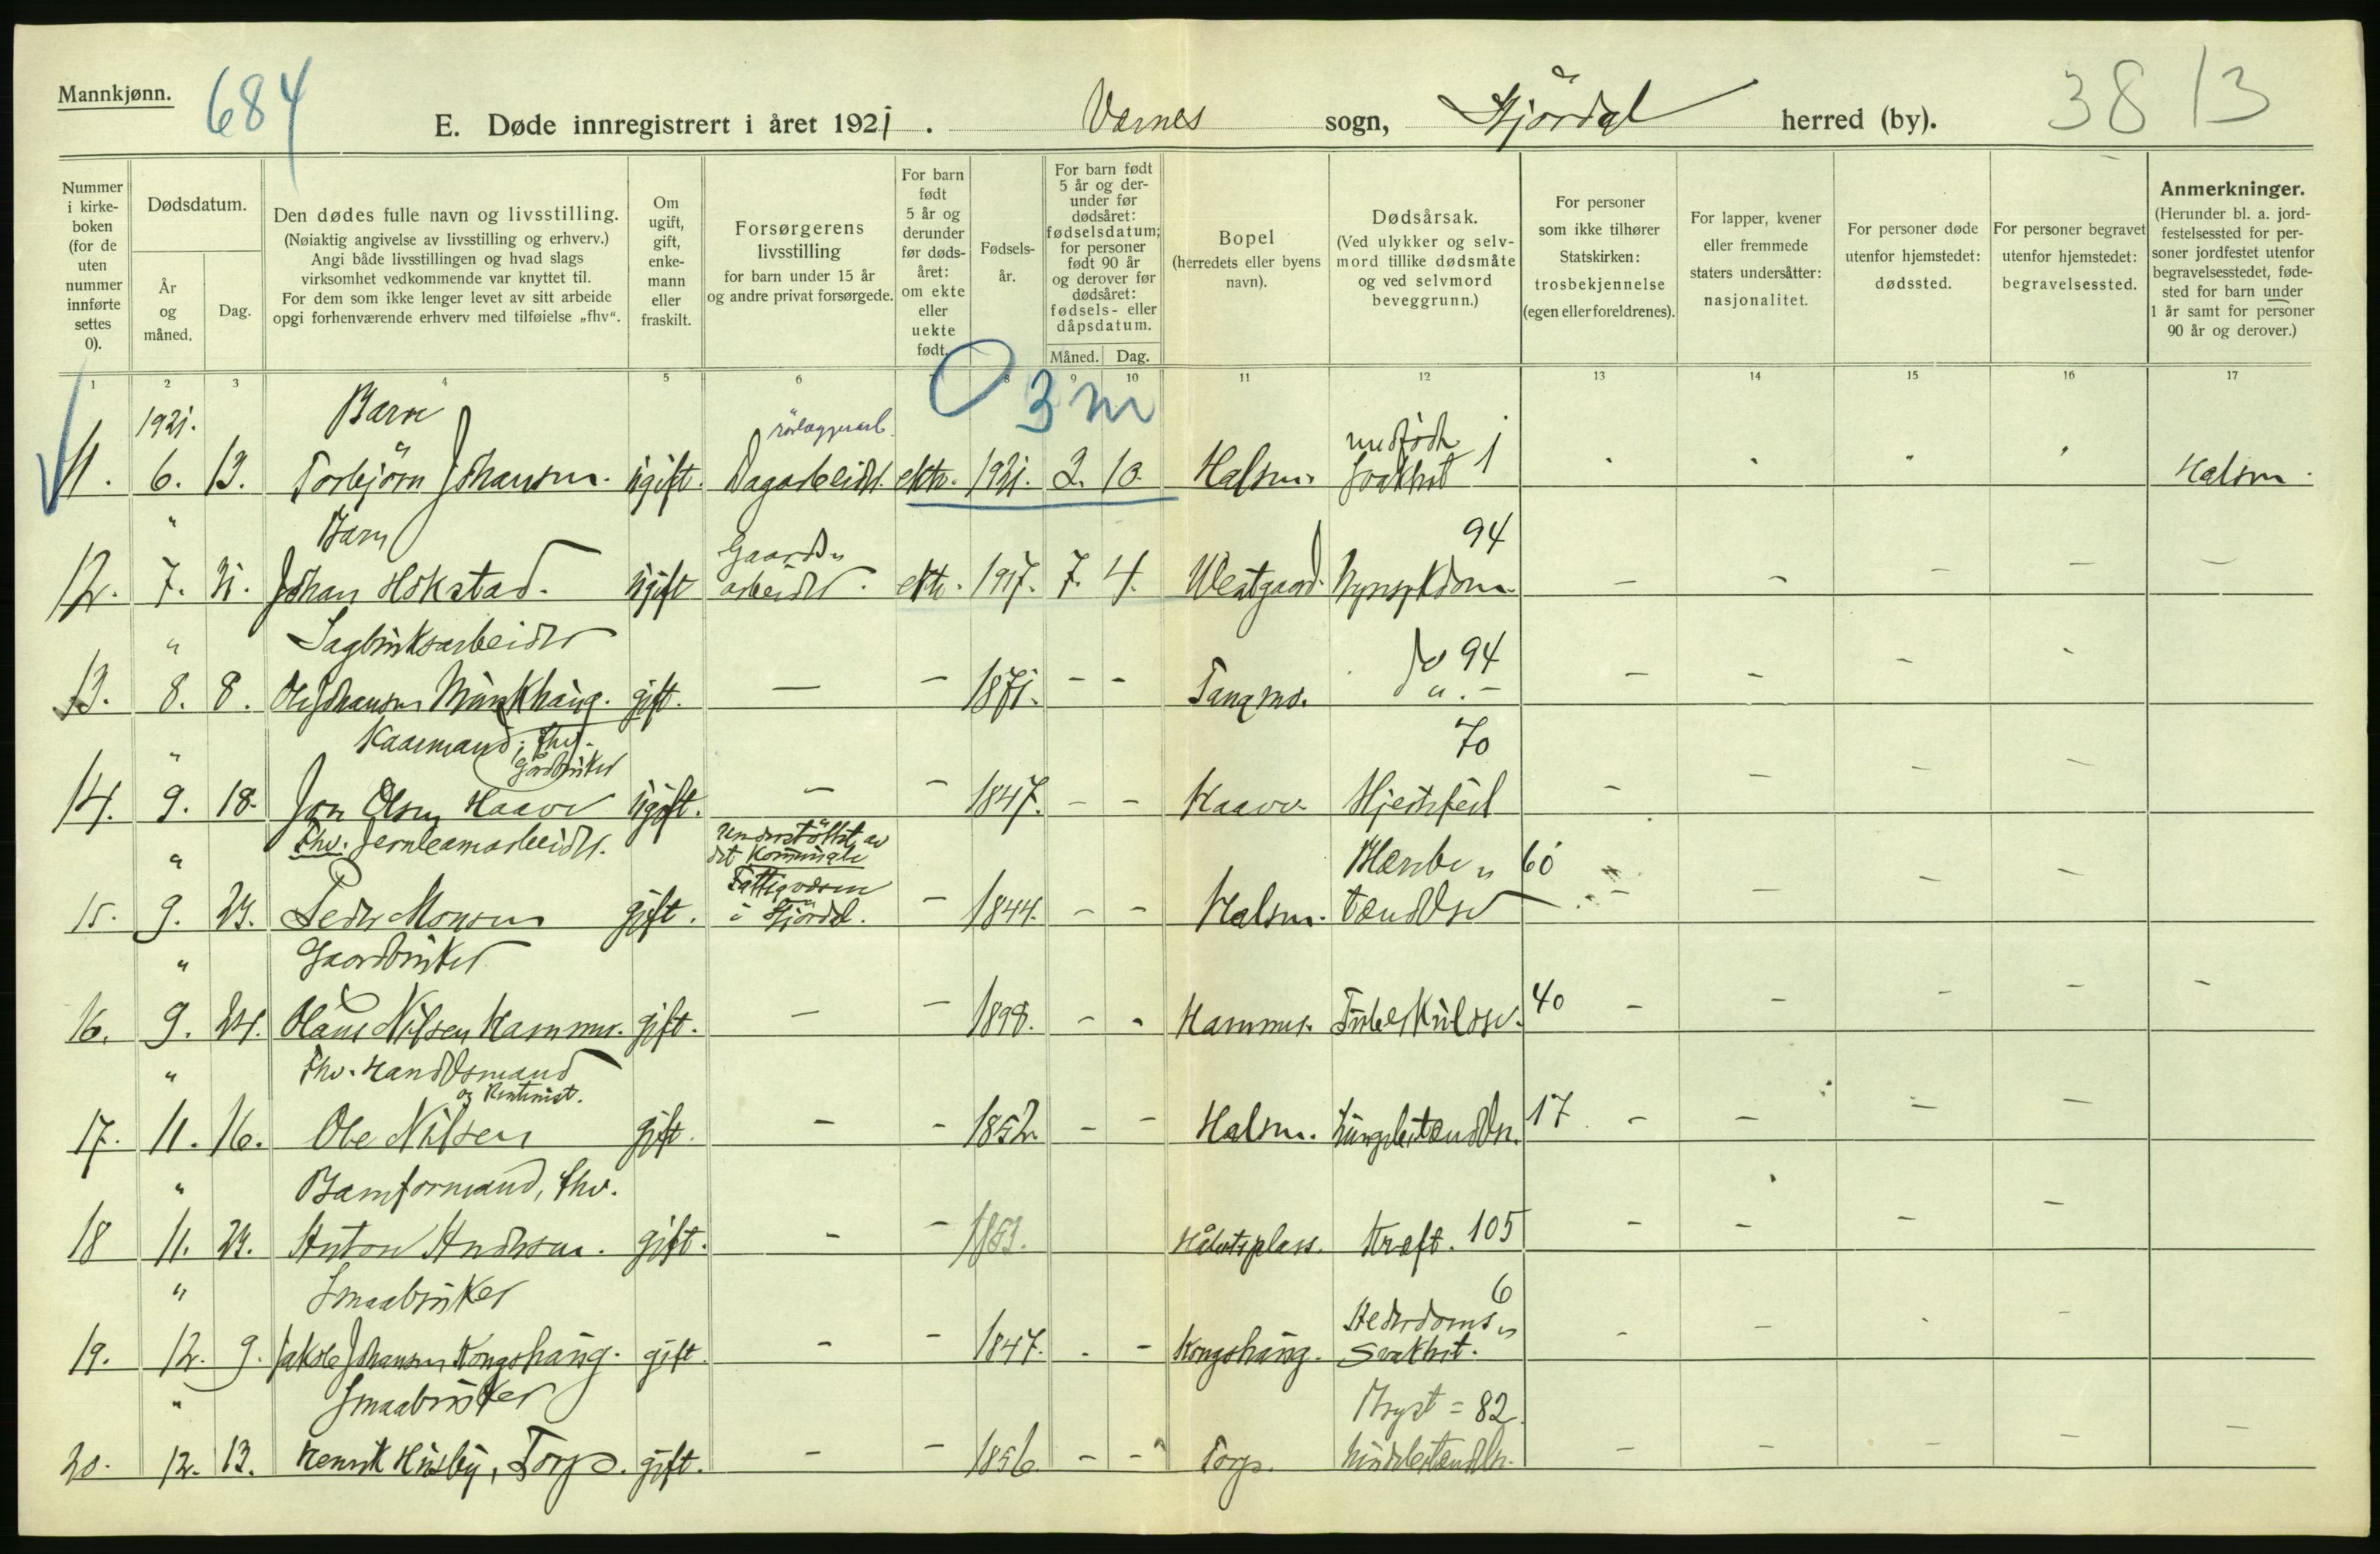 Mannkjønn.
684
E. Døde innregistrert i året 1921.
Værnes sogn, Stjördal herred (by).
38 13
Nummer i kirke-boken (for de uten nummer innførte settes 0).
Dødsdatum.
År og måned.
Dag.
Den dødes fulle navn og livsstilling.
(Nøiaktig angivelse av livsstilling og erhverv.)
Angi både livsstillingen og hvad slags
virksomhet vedkommende var knyttet til.
For dem som ikke lenger levet av sitt arbeide
opgi forhenværende erhverv med tilføielse „fhv“.
Om ugift, gift, enke-mann eller fraskilt.
Forsørgerens livsstilling
for barn under 15 år
og andre privat forsørgede.
For barn født 5 år og derunder før døds-året: om ekte eller uekte født.
Fødsels-år.
For barn født 5 år og der-under før dødsåret: fødselsdatum; for personer født 90 år og derover før dødsåret: fødsels- eller dåpsdatum.
Måned. Dag.
Bopel
(herredets eller byens navn).
Dødsårsak.
(Ved ulykker og selv-mord tillike dødsmåte og ved selvmord beveggrunn.)
For personer som ikke tilhører Statskirken: trosbekjennelse (egen eller foreldrenes).
For lapper, kvener eller fremmede staters undersåtter: nasjonalitet.
For personer døde utenfor hjemstedet: dødssted.
For personer begravet utenfor hjemstedet: begravelsessted.
Anmerkninger.
(Herunder bl. a. jord-festelsessted for per-soner jordfestet utenfor begravelsesstedet, føde-sted for barn under 1 år samt for personer 90 år og derover.)
1 2 3 4 5 6 8 9 10 11 12 13 14 15 16 17
0 3 m
1921. Barn medfødt
11. 6. 13. Torbjörn Johansen. ugift. Dagarbeider. ekte. 1921. 2. 10. Halsen. svakhet 1 Halsen
" Barn Gaards- 94
12. 7. 31. Johan Hokstad. ugift arbeider. ekte. 1917. 7. 4. Westgaard. Nyresykdom
" Sagbruksarbeider
13. 8. 8. Ole Johansen Munkhaug. gift. — — 1871. - - Tangmo. do 94 " . —
" Kaarmand, fhv. Gårdbruker 70
14. 9. 18. Jon Olsen Haave ugift. — — 1847. — — Haave Hjertefeil
" Fhv. Jernbanearbeider. Understöttet av det Kommunale Blære- 60
15. 9. 23. Peder Monsen gift. Fattigvæsen i Stjördal. — 1844. — — Halsen. betændelse
" Gaardbruker
16. 9. 24. Olaus Nilsen Hammer. gift. — — 1898. - - Hammer. Tuberkulose. 40
" Fhv. Handelsmand og Rentenist.
17. 11. 16. Ole Nilsen gift. — - 1852 - — Halsen. Lungebetændelse. 17
" Baneformand, fhv.
18 11. 23. Anton Andersen. gift. - — 1853. Kræft. 105
" Smaabruker 6
19. 12. 9. Jakob Johansen Kongshaug. gift. - — 1847. - — Kongshaug. Alderdoms- svakhet.
" Smaabruker Bryst = 82
20. 12. 13. Henrik Husby, Torp. gift. - — 1856 - - Torp. hindebetændelse.